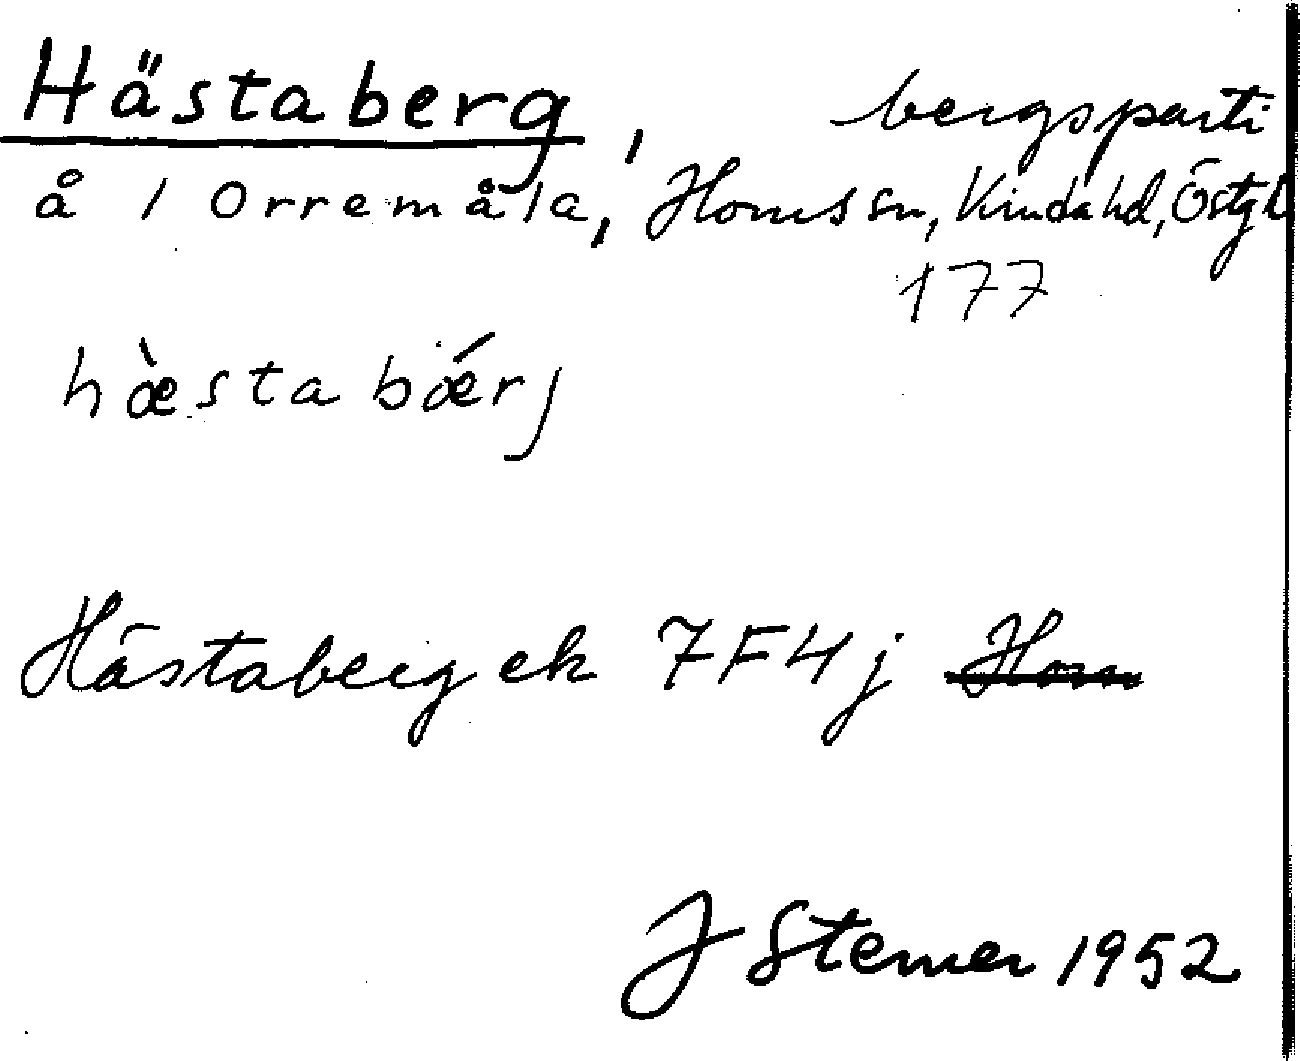 Hästaberg, bergsparti
å 1 Orremåla, Horns sn, Kinda hd, Östgl
177
hæ̀sta bǽrj
Hästaberg ek 7F4j Horn
J Sterner 1952